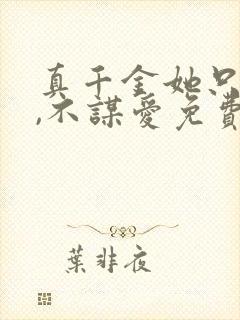 真千金她只
,不謀愛免費
葉非夜